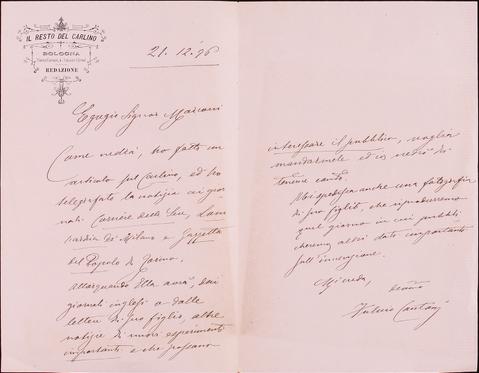 IL RESTO DEL CARLINO
BOLOGNA
REDAZIONE
21. 12. 96
Egregio Signor Marconi
Come vedrà, ho fatto un
articolo sul Carlino, ed ho
telegrafato la notizia ai gior
nali Corriere della Sera, Lom
bardia di Milano e Gazzetta
del Popolo di Torino.
Allorquando Ella avrà, dai
giornali inglesi o dalle
lettere di suo figlio, altre
notizie di nuovi esperimenti
importanti e che possano
interessare il pubblico, voglia
mandarmele ed io vedrò di
tenerne conto.
Mi spedisca anche una fotografia
di suo figlio, che riprodurremo
quel giorno in cui pubbli
cheremo altri dato importante
sull'invenzione.
Mi creda,
Fulvio Cantoni